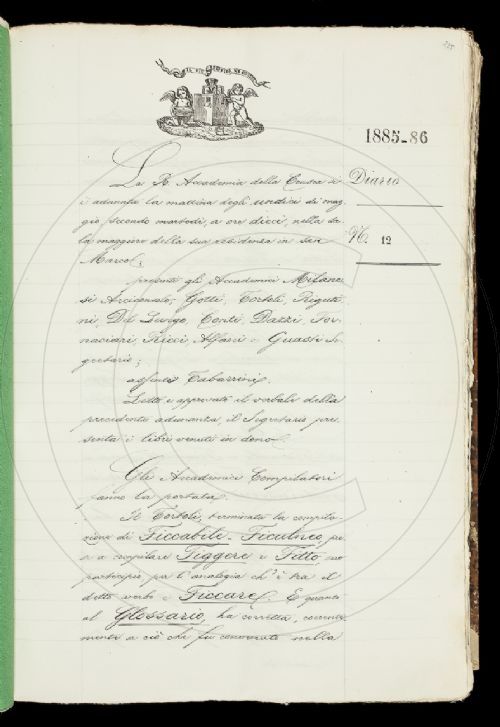 1885-86
Diario
N. 12
La R. Accademia della Crusca si
è adunata la mattina degli undici di mag-
gio, secondo martedì, a ore dieci, nella sa-
la maggiore della sua residenza in San
Marco;
presenti gli Accademici Milane-
si Arciconsolo, Gotti, Tortoli, Riguti-
ni, Del Lungo, Conti, Dazzi, For-
naciari, Ricci, Alfani e Guasti Se-
gretario;
assente Tabarrini.
Letto e approvato il verbale della
precedente adunanza, il Segretario pre-
senta i libri venuti in dono.
Gli Accademici Compilatori
fanno la portata.
Il Tortoli, terminata la compila-
zione di Ficcabile - Ficulneo, pe-
rò a compilare Figgere e Fitto, suo
participio, per l'analogia ch'è tra il
detto verbo e Ficcare. E quanto
al Glossario, ha corretta, coerente-
mente a ciò che fu convenuto nella